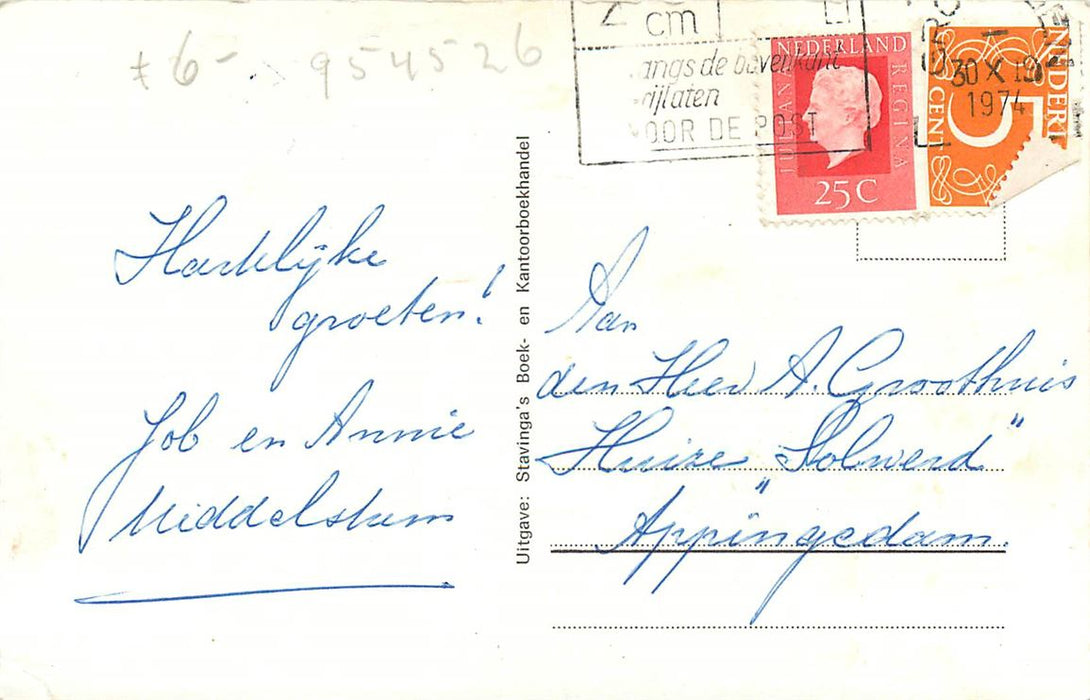 6-
9545526
cm
langs de bovenkant
vrijlaten
VOOR DE POST
NEDERLAND
JULIANA
REGINA
25C
30 X 19
1974
NEDERL
5
CENT
Hartelijke
groeten!
Job en Annie
Middelstum
Uitgave: Stavinga's Boek- en Kantoorboekhandel
Aan
den Heer A. Groothuis
Huize „Solwerd"
Appingedam.